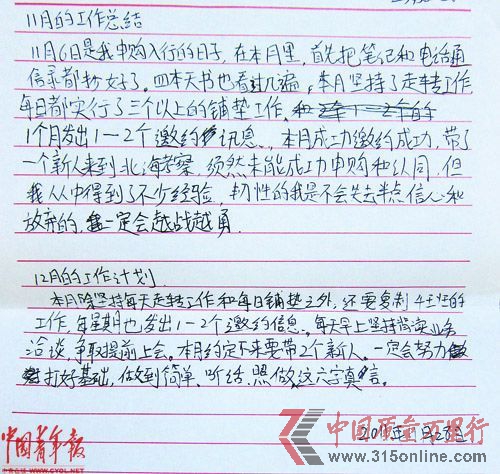 11月的工作总结
11月6日是我申购入行的日子,在本月里,首先把笔记和电话通
信录都抄好了。四本天书也看过几遍,本月坚持了走转工作,
每日都实行了三个以上的铺垫工作。
1个月发出1一2个邀约讯息,本月成功邀约成功,带了
一个新人来到北海考察,须然未能成功申购和认同,但
我从中得到了不少经验,韧性的我是不会失去半点信心和
放弃的,我一定会越战越勇.
12月的工作计划
本月除坚持每天走转工作和每日铺垫之外,还要复制4主性的
工作,每星期也发出1-2个邀约信息。每天早上坚持业务
洽谈,争取提前上会。本月约定下来要带2个新人。一定会努力
打好基础,做到简单、听话、照做这六字真信。
2011年
中国青年报
中青在线 WWW.CYOL.NET
中国直销百强行
www.315online.com